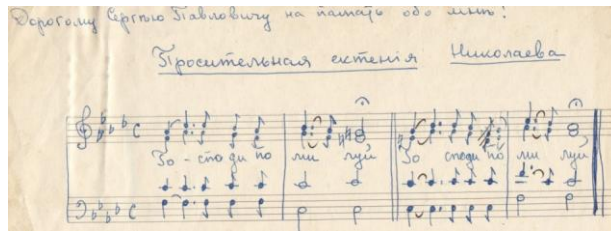 Дорогому Сергѣю Павловичу на память обо мнѣ!
Просительная ектенія Николаева
Го - споди по ми луй Го споди по ми луй